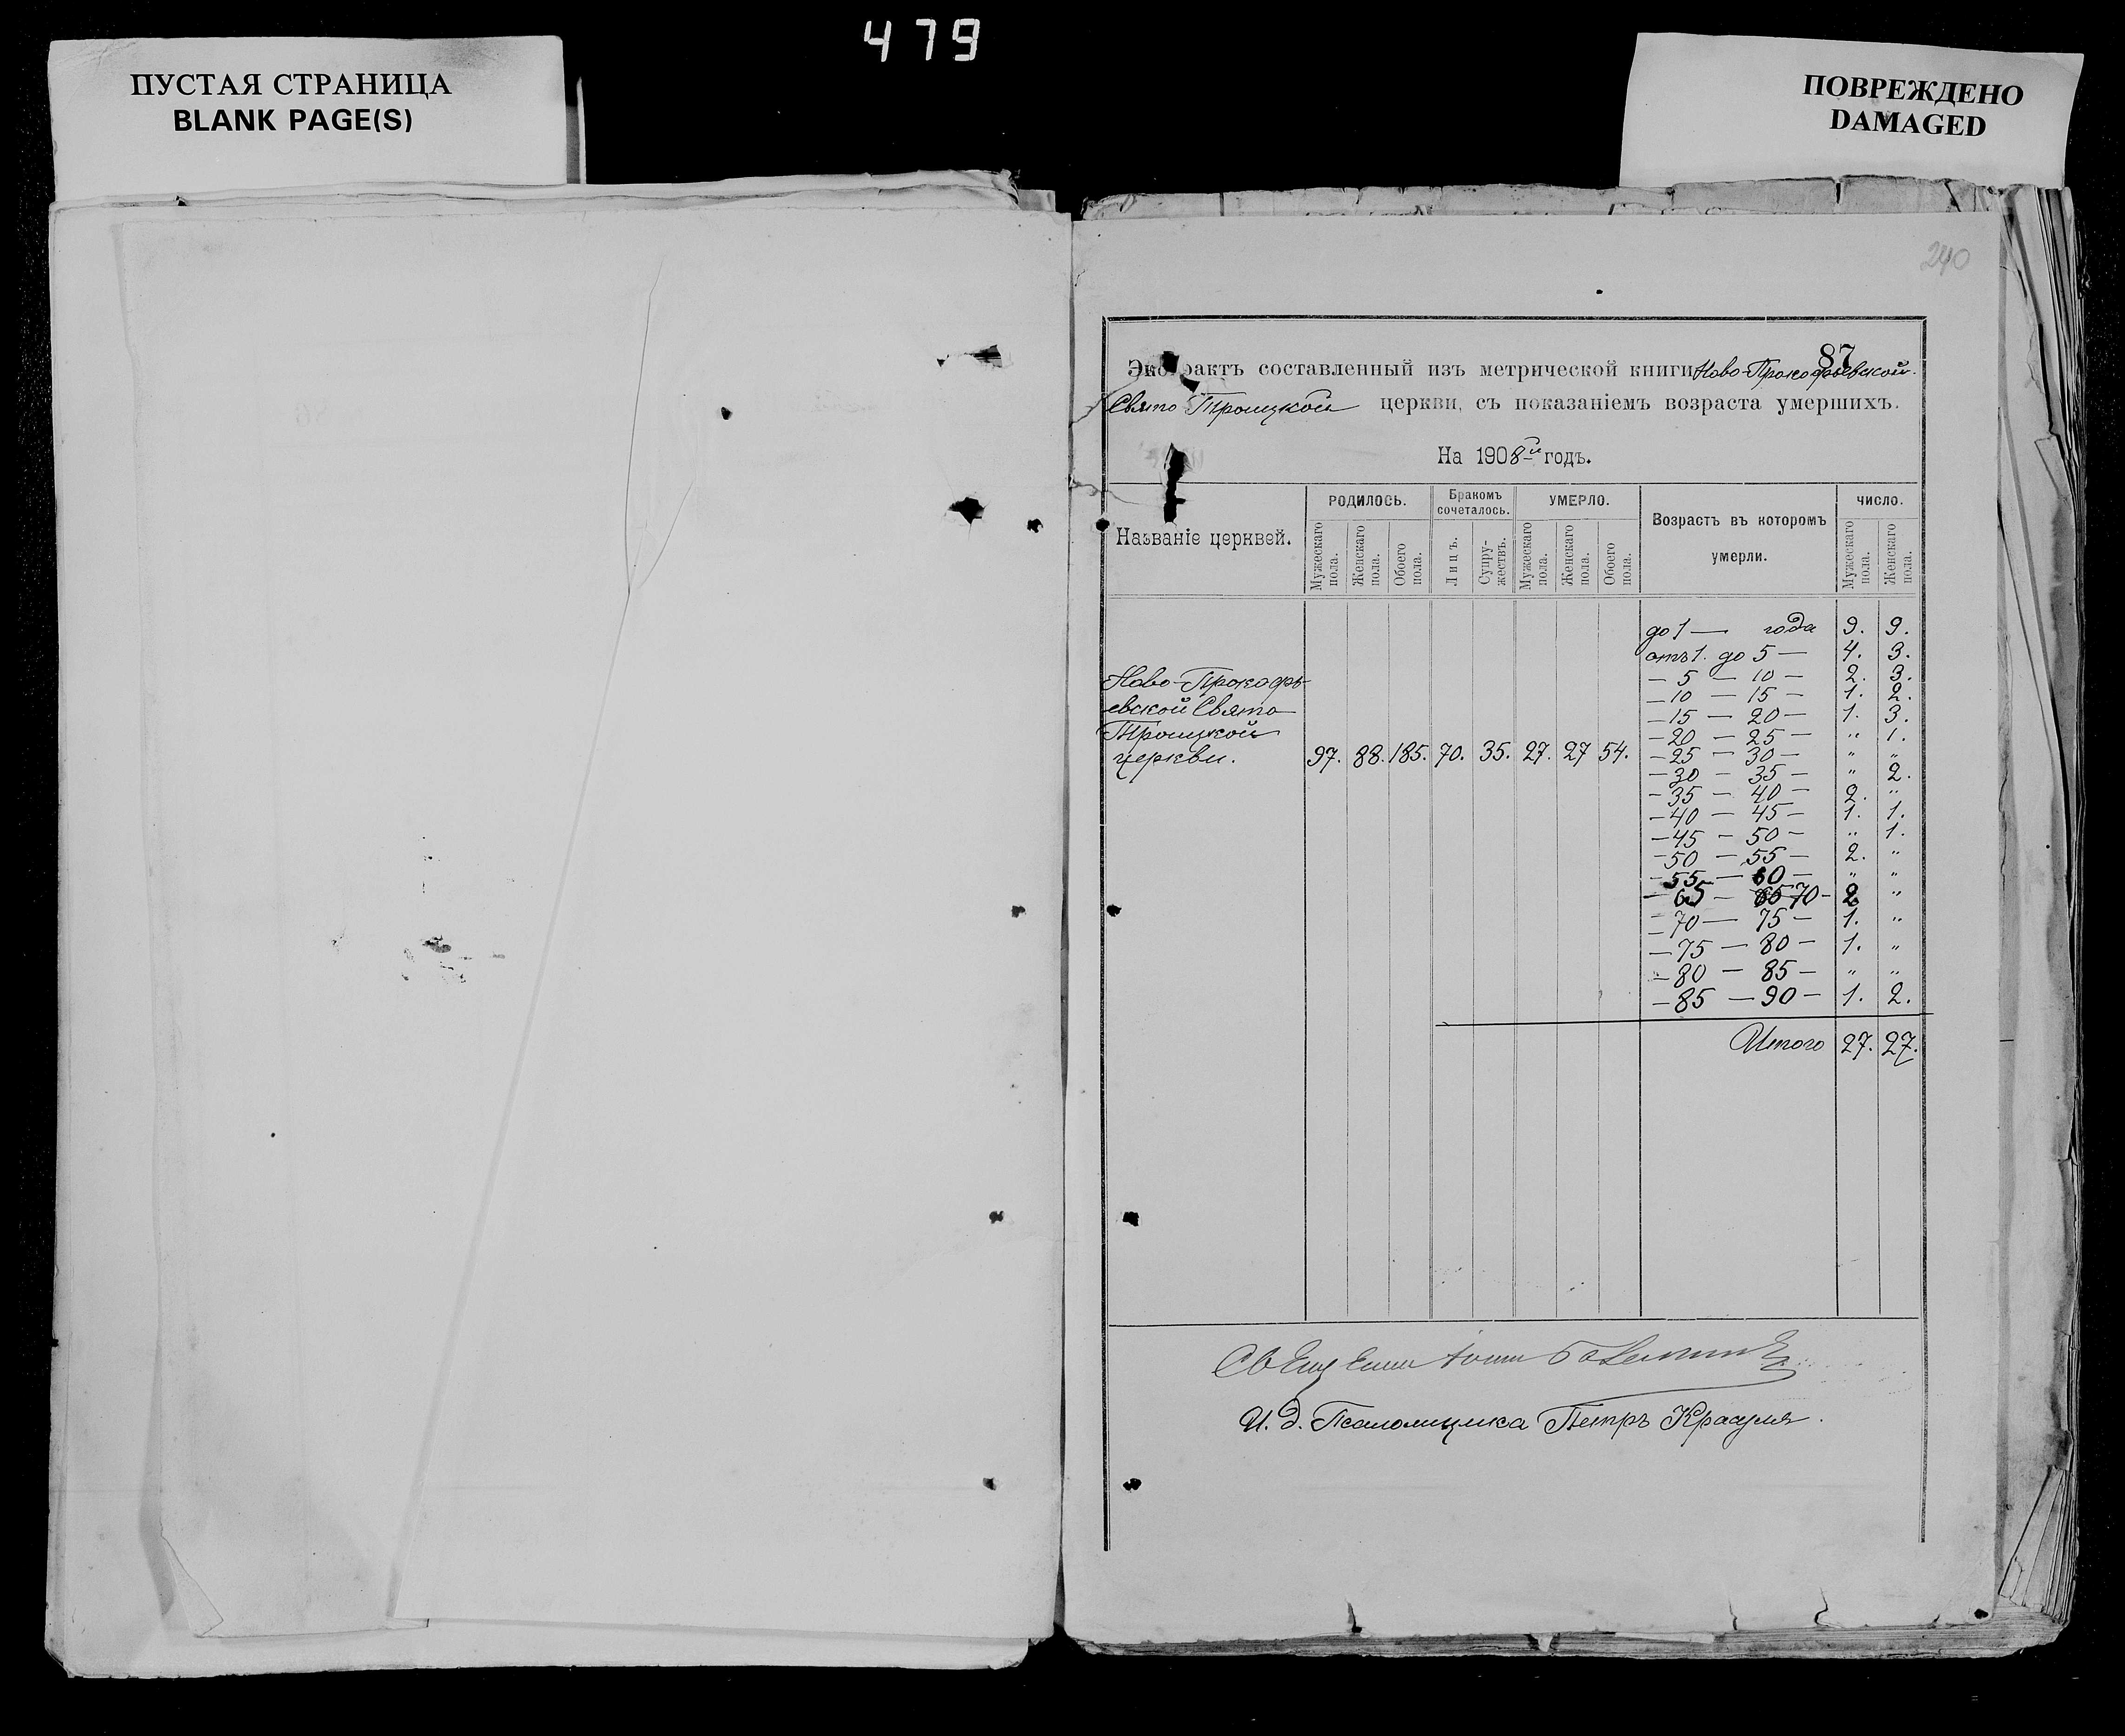 479
ПУСТАЯ СТРАНИЦА
BLANK PAGE(S)
ПОВРЕЖДЕНО
DAMAGED
240
87
Экстрактъ составленный изъ метрической книги Ново-Прокофьевской
Свято Троицкой церкви, съ показаніемъ возраста умершихъ.
На 1908й годъ.
Названіе церквей.
РОДИЛОСЬ.
Мужескаго пола.
Женскаго пола.
Обоего пола.
Бракомъ сочеталось.
Лицъ.
Супружествъ.
УМЕРЛО.
Мужескаго пола.
Женскаго пола.
Обоего пола.
Возрастъ въ которомъ умерли.
ЧИСЛО.
Мужескаго пола.
Женскаго пола.
Ново-Прокофь-
евской Свято
Троицкой
церкви. 97. 88. 185. 70. 35. 27. 27 54.
до 1 — года 9. 9.
отъ 1. до 5 — 4. 3.
— 5 — 10 — 2. 3.
— 10 — 15 — 1. 2.
— 15 — 20 — 1. 3.
— 20 — 25 — " 1.
— 25 — 30 — " "
— 30 — 35 — " 2.
— 35 — 40 — 2. "
— 40 — 45 — 1. 1.
— 45 — 50 — " 1.
— 50 — 55 — 2. "
— 55 — 60 — " "
— 65 — 70 — 2 "
— 70 — 75 — 1. "
— 75 — 80 — 1. "
— 80 — 85 — " "
— 85 — 90 — 1. 2.
Итого 27. 27.
И. д. Псаломщика Петръ